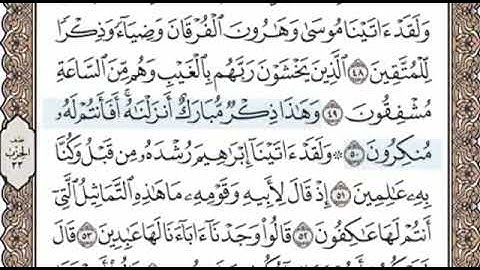 وَلَقَدْ ءَاتَيْنَا مُوسَىٰ وَهَٰرُونَ الْفُرْقَانَ وَضِيَآءً وَذِكْرًا
لِّلْمُتَّقِينَ ٤٨ الَّذِينَ يَخْشَوْنَ رَبَّهُم بِالْغَيْبِ وَهُم مِّنَ السَّاعَةِ
مُشْفِقُونَ ٤٩ وَهَٰذَا ذِكْرٌ مُّبَارَكٌ أَنزَلْنَٰهُ ۚ أَفَأَنتُمْ لَهُۥ
مُنكِرُونَ ٥٠ ۞ وَلَقَدْ ءَاتَيْنَآ إِبْرَٰهِيمَ رُشْدَهُۥ مِن قَبْلُ وَكُنَّا
بِهِۦ عَٰلِمِينَ ٥١ إِذْ قَالَ لِأَبِيهِ وَقَوْمِهِۦ مَا هَٰذِهِ التَّمَاثِيلُ الَّتِىٓ
أَنتُمْ لَهَا عَٰكِفُونَ ٥٢ قَالُوا۟ وَجَدْنَآ ءَابَآءَنَا لَهَا عَٰبِدِينَ ٥٣ قَالَ
نصف
الحزب
٣٣